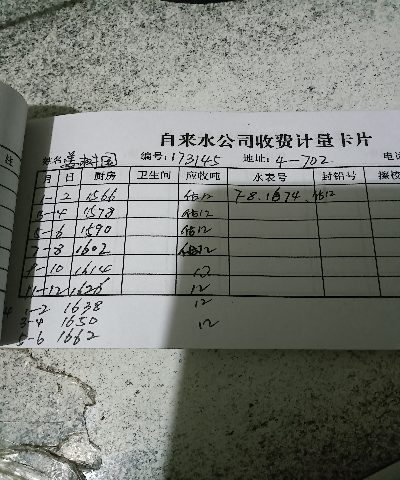 自来水公司收费计量卡片
姓名 编号:173145 地址:4-702 电话
月 日 厨房 卫生间 应收吨 水表号 封铅号
1-2 1566 估12 7-8.1674 估12
3-4 1578 估12
5-6 1590 估12
7-8 1602 12
9-10 1614 12
11-12 1626 12
1-2 1638 12
3-4 1650
5-6 1662 12